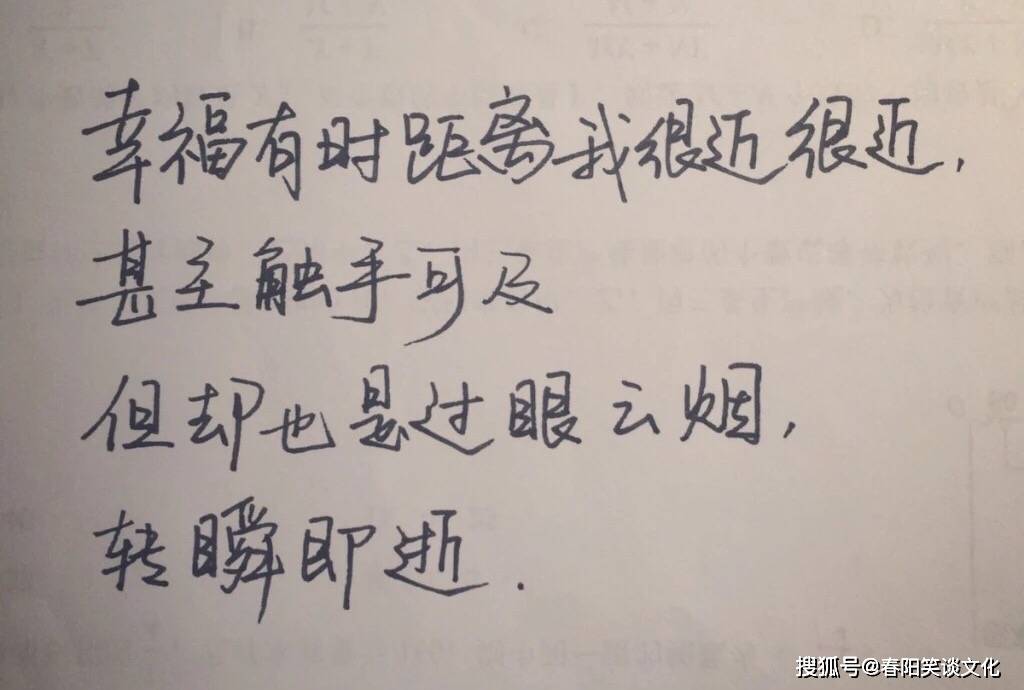 幸福有时距离我很近很近，
甚至触手可及
但却也是过眼云烟，
转瞬即逝.
搜狐号@春阳笑谈文化